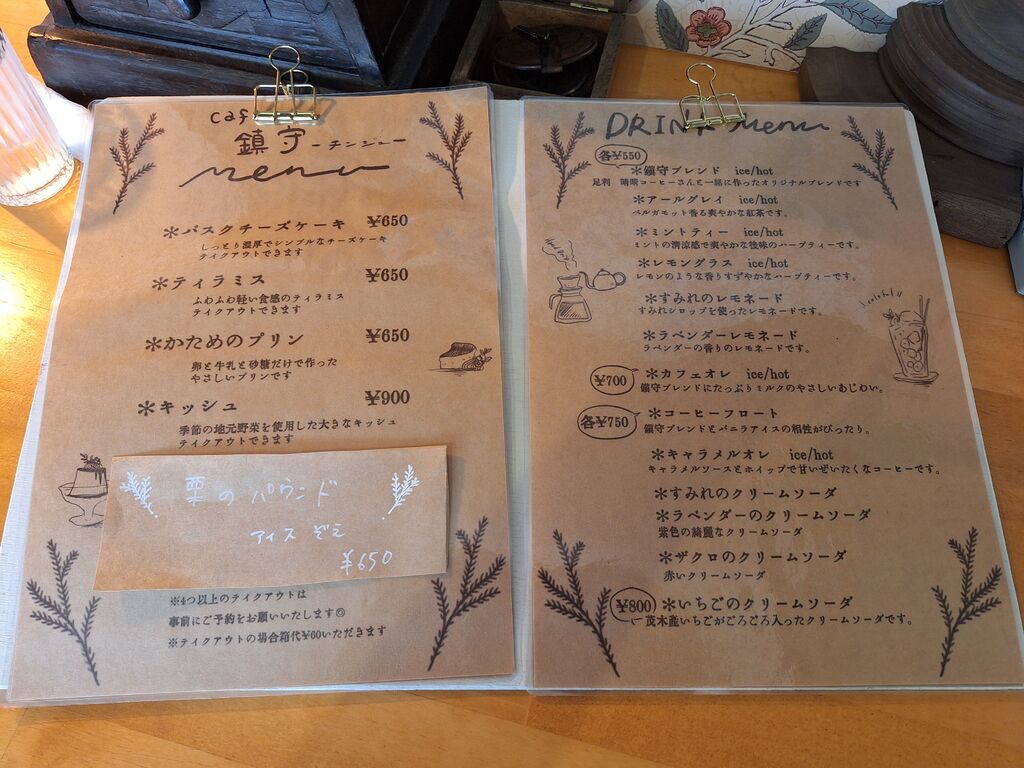 caf
鎮守 -チンジュ-
menu
*バスクチーズケーキ ¥650
しっとり濃厚でシンプルなチーズケーキ
テイクアウトできます
*ティラミス ¥650
ふわふわ軽い食感のティラミス
テイクアウトできます
*かためのプリン ¥650
卵と牛乳と砂糖だけで作った
やさしいプリンです
*キッシュ ¥900
季節の地元野菜を使用した大きなキッシュ
テイクアウトできます
栗のパウンド
アイス ぞえ
¥650
※4つ以上のテイクアウトは
事前にご予約をお願いいたします☺
※テイクアウトの場合箱代¥60いただきます
DRINK menu
各¥550
*鎮守ブレンド ice/hot
足利 晴晴コーヒーさんと一緒に作ったオリジナルブレンドです
*アールグレイ ice/hot
ベルガモット香る爽やかな紅茶です。
*ミントティー ice/hot
ミントの清涼感で爽やかな後味のハーブティーです。
*レモングラス ice/hot
レモンのような香りすずやかなハーブティーです。
*すみれのレモネード
すみれシロップを使ったレモネードです。
colorful!!
*ラベンダーレモネード
ラベンダーの香りのレモネードです。
¥700 *カフェオレ ice/hot
鎮守ブレンドにたっぷりミルクのやさしいあじわい。
各¥750 *コーヒーフロート
鎮守ブレンドとバニラアイスの相性がぴったり。
*キャラメルオレ ice/hot
キャラメルソースとホイップで甘いぜいたくなコーヒーです。
*すみれのクリームソーダ
*ラベンダーのクリームソーダ
紫色の綺麗なクリームソーダ
*ザクロのクリームソーダ
赤いクリームソーダ
¥800 *いちごのクリームソーダ
茂木産いちごがごろごろ入ったクリームソーダです。